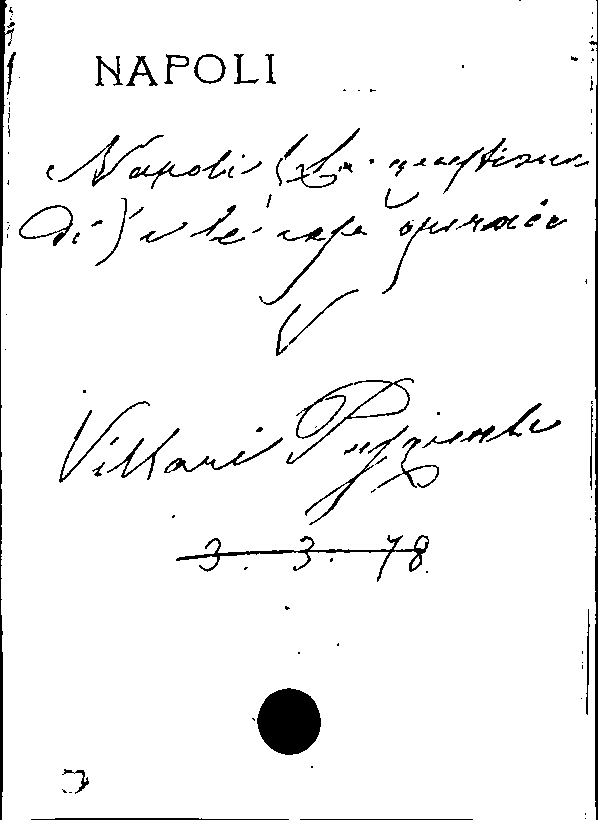 NAPOLI
Napoli (La questione
di) e le case operaie
V
Villari Pasquale
3. 3. 78